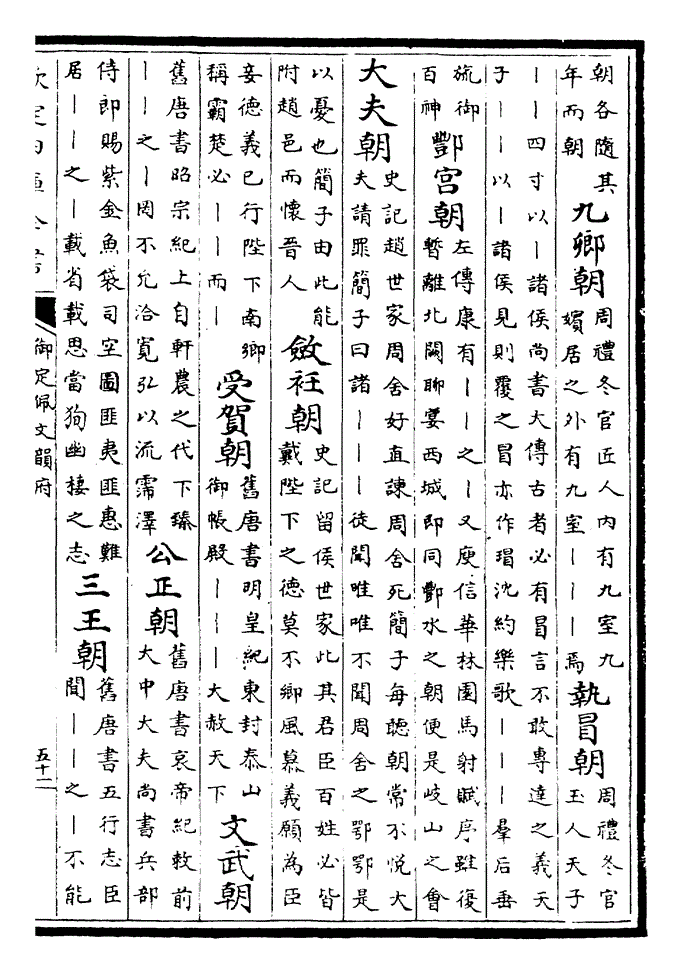 朝各隨其
年而朝
九卿朝
周禮冬官匠人内有九室九
嬪居之外有九室｜｜｜焉
執冒朝
周禮冬官
玉人天子
｜｜四寸以｜諸侯尚書大傳古者必有冒言不敢專達之義天
子｜｜以｜諸侯見則覆之冒亦作瑁沈約樂歌｜｜｜羣后垂
旒御
百神
酆宫朝
左傳康有｜｜之｜又庾信華林園馬射賦序雖復
暫離北闕聊宴西城即同酆水之朝便是岐山之會
大夫朝
史記趙世家周舍好直諫周舍死簡子每聽朝常不悦大
夫請罪簡子曰諸｜｜｜徒聞唯唯不聞周舍之鄂鄂是
以憂也簡子由此能
附趙邑而懷晉人
斂衽朝
史記留侯世家此其君臣百姓必皆
戴陛下之德莫不鄉風慕義願為臣
妾德義已行陛下南鄉
稱霸楚必｜｜而｜
受賀朝
舊唐書明皇紀東封泰山
御帳殿｜｜｜大赦天下
文武朝
舊唐書昭宗紀上自軒農之代下臻
｜｜之｜罔不允洽寛弘以流霈澤
公正朝
舊唐書哀帝紀敕前
大中大夫尚書兵部
侍郎賜紫金魚袋司空圖匪夷匪惠難
居｜｜之｜載省載思當狥幽棲之志
三王朝
舊唐書五行志臣
聞｜｜之｜不能
欽定四庫全書
御定佩文韻府
五十二